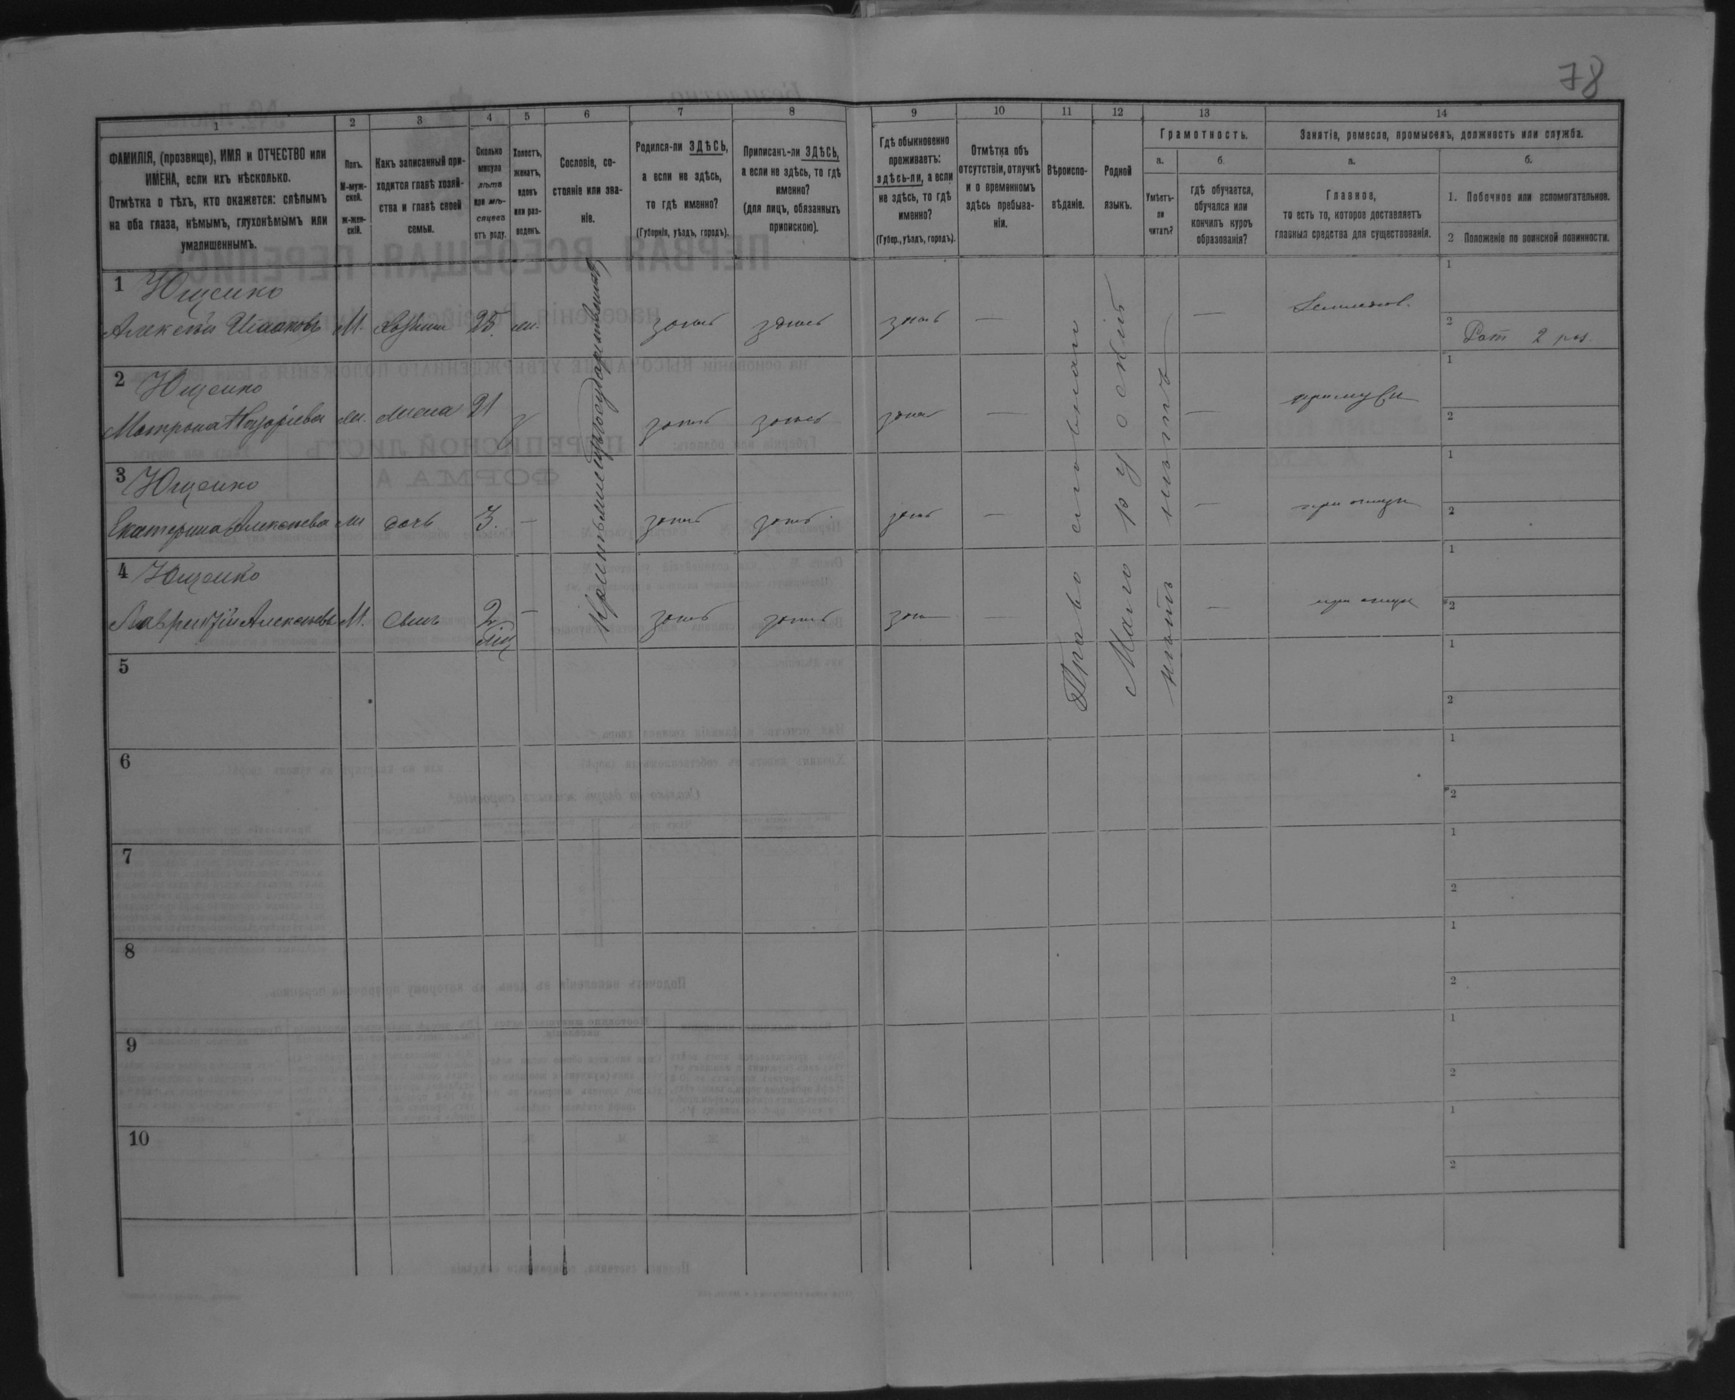 78
1
2
3
4
5
6
7
8
9
10
11
12
13
14
ФАМИЛІЯ, (прозвище), ИМЯ и ОТЧЕСТВО или
ИМЕНА, если ихъ нѣсколько.
Отмѣтка о тѣхъ, кто окажется: слѣпымъ
на оба глаза, нѣмымъ, глухонѣмымъ или
умалишеннымъ.
Полъ.
М-муж-
ской.
Ж-жен-
скій.
Какъ записанный при-
ходится главѣ хозяй-
ства и главѣ своей
семьи.
Сколько
минуло
лѣтъ
или мѣ-
сяцевъ
отъ роду.
Холостъ,
женатъ,
вдовъ
или раз-
веденъ.
Сословіе, со-
стояніе или зва-
ніе.
Родился-ли ЗДѢСЬ,
а если не здѣсь,
то гдѣ именно?
(Губернія, уѣздъ, городъ).
Приписанъ-ли ЗДѢСЬ,
а если не здѣсь, то гдѣ
именно?
(для лицъ, обязанныхъ
припискою).
Гдѣ обыкновенно
проживаетъ:
здѣсь-ли, а если
не здѣсь, то гдѣ
именно?
(Губер., уѣздъ, городъ).
Отмѣтка объ
отсутствіи, отлучкѣ
и о временномъ
здѣсь пребыва-
ніи.
Вѣроиспо-
вѣданіе.
Родной
языкъ.
Грамотность.
а.
б.
Умѣетъ-
ли
читать?
гдѣ обучается,
обучался или
кончилъ курсъ
образованія?
Занятіе, ремесло, промыселъ, должность или служба.
а.
б.
Главное,
то есть то, которое доставляетъ
главныя средства для существованія.
1. Побочное или вспомогательное.
2 Положеніе по воинской повинности.
1 Ющенко
Алексѣй Исаковъ М. хозяинъ 25. здѣсь здѣсь здѣсь —
—
1
2
Рат 2 раз.
2 Ющенко
Матрона Назаріева жена 21 здѣсь здѣсь здѣсь —
—
при мужѣ
1
2
3 Ющенко
Екатерина Алексѣева дочь 3. — здѣсь здѣсь здѣсь —
—
при отцѣ
1
2
4 Ющенко
Алексѣевъ М. сынъ 2 — здѣсь здѣсь —
—
при отцѣ
1
2
Православнаго
Малорускій
нѣтъ
5
1
2
6
1
2
7
1
2
8
1
2
9
1
2
10
1
2